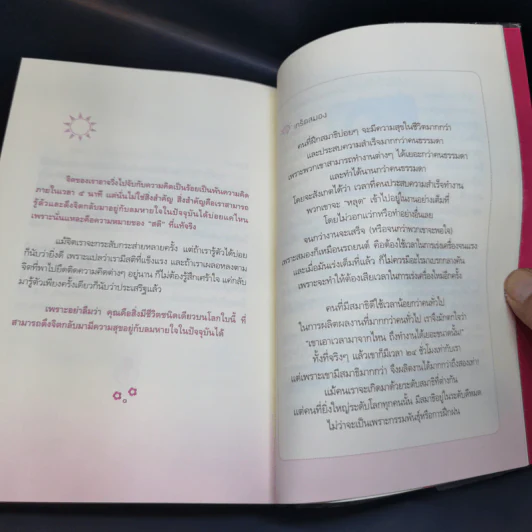 จิตของเราอาจวิ่งไปจับกับความคิดเป็นร้อยเป็นพันความคิด
ภายในเวลา ๕ นาที แต่นั่นไม่ใช่สิ่งสำคัญ สิ่งสำคัญคือเราสามารถ
รู้ตัวและดึงจิตกลับมาอยู่กับลมหายใจในปัจจุบันได้บ่อยแค่ไหน
เพราะนั่นแหละคือความหมายของ "สติ" ที่แท้จริง
แม้จิตเราจะกระสับกระส่ายหลายครั้ง แต่ถ้าเรารู้ตัวได้บ่อย
ก็นับว่ายิ่งดี เพราะแปลว่าเรามีสติที่แข็งแรง และถ้าเราเผลอหลงตาม
จิตที่พาไปยึดติดความคิดต่างๆ อยู่นาน ก็ไม่ต้องรู้สึกเศร้าใจ แค่กลับ
มารู้ตัวเพียงครั้งเดียวก็นับว่าประเสริฐแล้ว
เพราะอย่าลืมว่า คุณคือสิ่งมีชีวิตชนิดเดียวบนโลกใบนี้ ที่
สามารถดึงจิตกลับมามีความสุขอยู่กับลมหายใจในปัจจุบันได้
เกร็ดสมอง
คนที่ฝึกสมาธิบ่อยๆ จะมีความสุขในชีวิตมากกว่า
และประสบความสำเร็จมากกว่าคนธรรมดา
เพราะพวกเขาสามารถทำงานต่างๆ ได้เยอะกว่าคนธรรมดา
และทำได้นานกว่าคนธรรมดา
โดยจะสังเกตได้ว่า เวลาที่คนประสบความสำเร็จทำงาน
พวกเขาจะ "หลุด" เข้าไปอยู่ในงานอย่างเต็มที่
โดยไม่วอกแวกหรือทำอย่างอื่นเลย
จนกว่างานจะเสร็จ (หรือจนกว่าพวกเขาจะพอใจ)
เพราะสมองก็เหมือนรถยนต์ คือต้องใช้เวลาในการเร่งเครื่องจนแรง
และเมื่อมันเร่งเต็มที่แล้ว ก็ไม่ควรมีอะไรมาเบรกกลางคัน
เพราะจะทำให้ต้องเสียเวลาในการเร่งเครื่องใหม่อีกครั้ง
คนที่มีสมาธิดี ใช้เวลาน้อยกว่าคนทั่วไป
ในการผลิตผลงานที่มากกว่าคนทั่วไป เราจึงมักตกใจว่า
"เขาเอาเวลามาจากไหน ถึงทำงานได้เยอะขนาดนั้น"
ทั้งที่จริงๆ แล้วเขาก็มีเวลา ๒๔ ชั่วโมงเท่ากับเรา
แต่เพราะเขามีสมาธิมากกว่า จึงผลิตงานได้มากกว่าถึงสองเท่า
แม้คนเราจะเกิดมาด้วยระดับสมาธิที่ต่างกัน
แต่คนที่ยิ่งใหญ่ระดับโลกทุกคนนั้น มีสมาธิอยู่ในระดับดีหมด
ไม่ว่าจะเป็นเพราะกรรมพันธุ์หรือการฝึกฝน